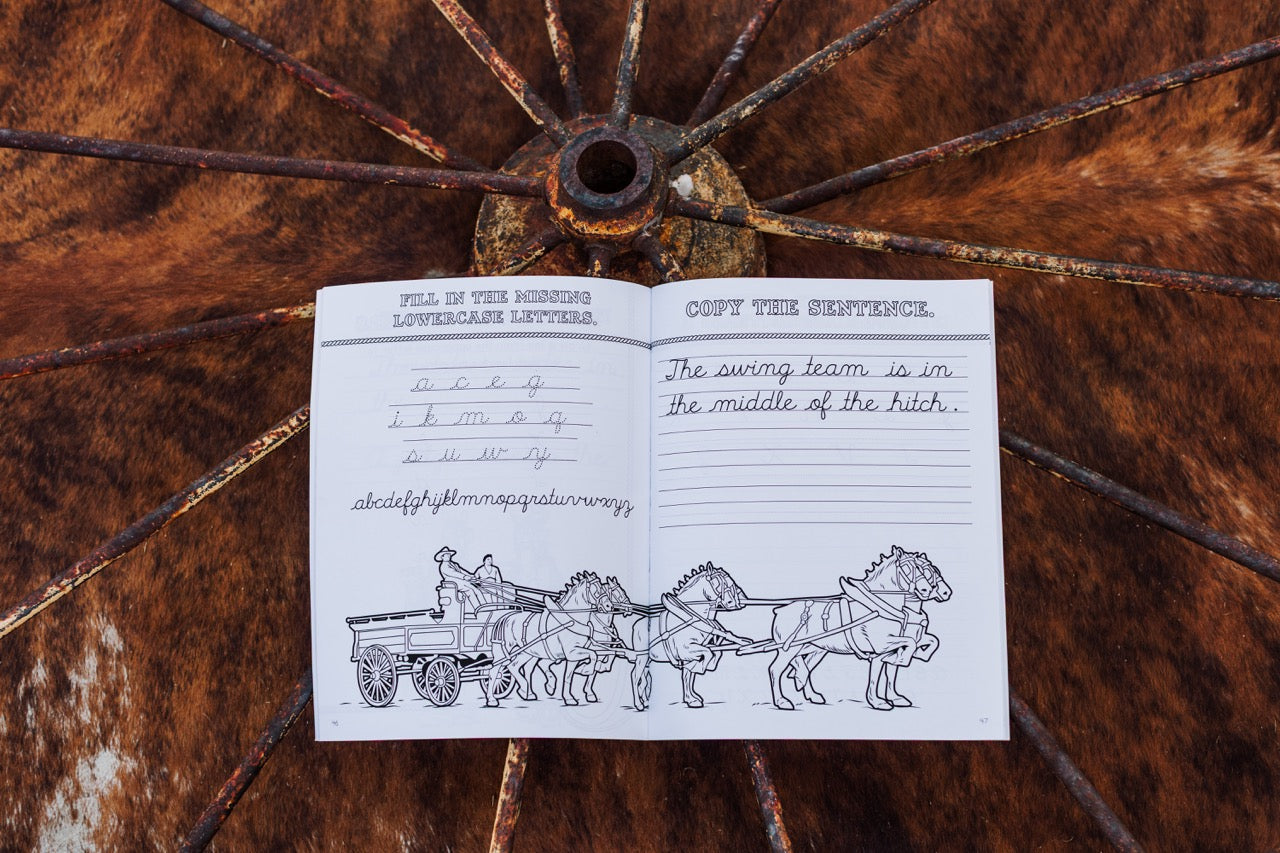 FILL IN THE MISSING
LOWERCASE LETTERS.
a c e g
i k m o q
s u w y
abcdefghijklmnopqrstuvwxyz
46
COPY THE SENTENCE.
The swing team is in
the middle of the hitch.
47